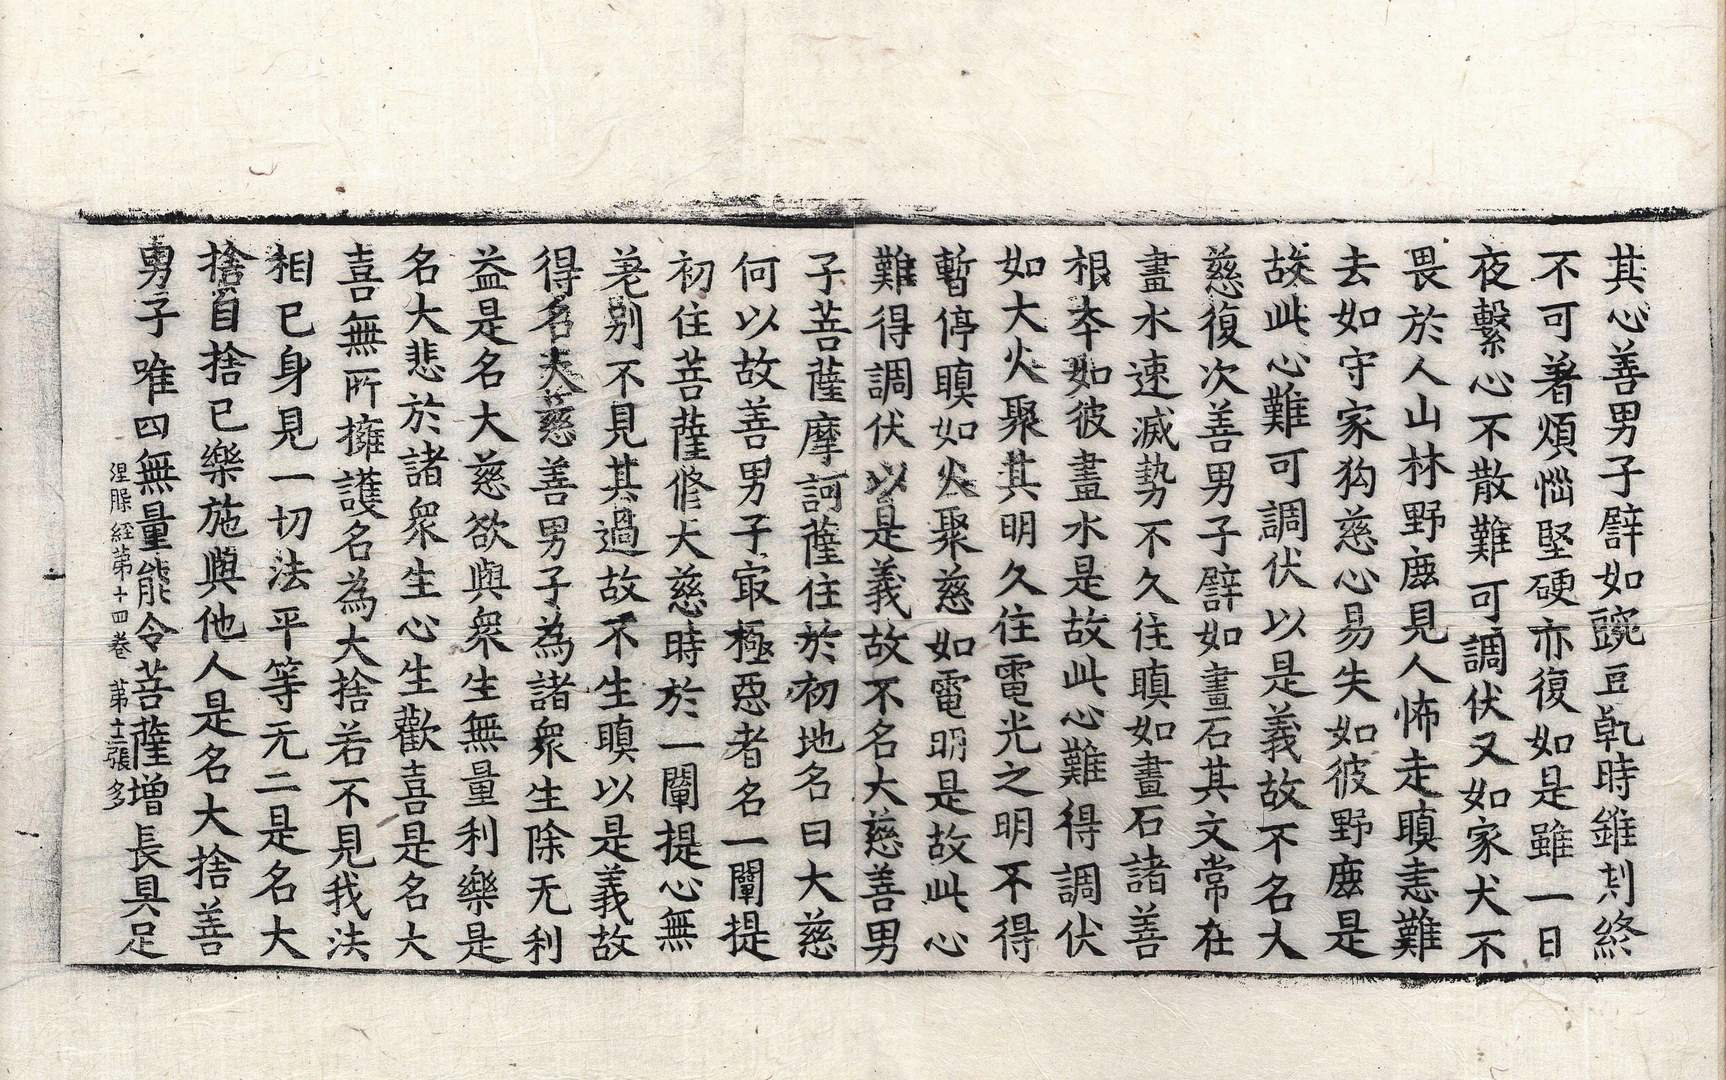 其心善男子譬如豌豆乹時錐刾終
不可著煩惱堅硬亦復如是雖一日
夜繫心不散難可調伏又如家犬不
畏於人山林野鹿見人怖走瞋恚難
去如守家狗慈心易失如彼野鹿是
故此心難可調伏以是義故不名大
慈復次善男子譬如畫石其文常在
畫水速滅勢不久住瞋如畫石諸善
根夲如彼畫水是故此心難得調伏
如大火聚其明久住電光之明不得
暫停瞋如火聚慈如電明是故此心
難得調伏以是義故不名大慈善男
子菩薩摩訶薩住於初地名曰大慈
何以故善男子㝡極惡者名一闡提
初住菩薩修大慈時於一闡提心無
差別不見其過故不生瞋以是義故
得名大慈善男子為諸衆生除无利
益是名大慈欲與衆生無量利樂是
名大悲於諸衆生心生歡喜是名大
喜無所擁護名為大捨若不見我法
相已身見一切法平等无二是名大
捨自捨已樂施與他人是名大捨善
男子唯四無量能令菩薩增長具足
涅槃經第十四卷 第十二張 多